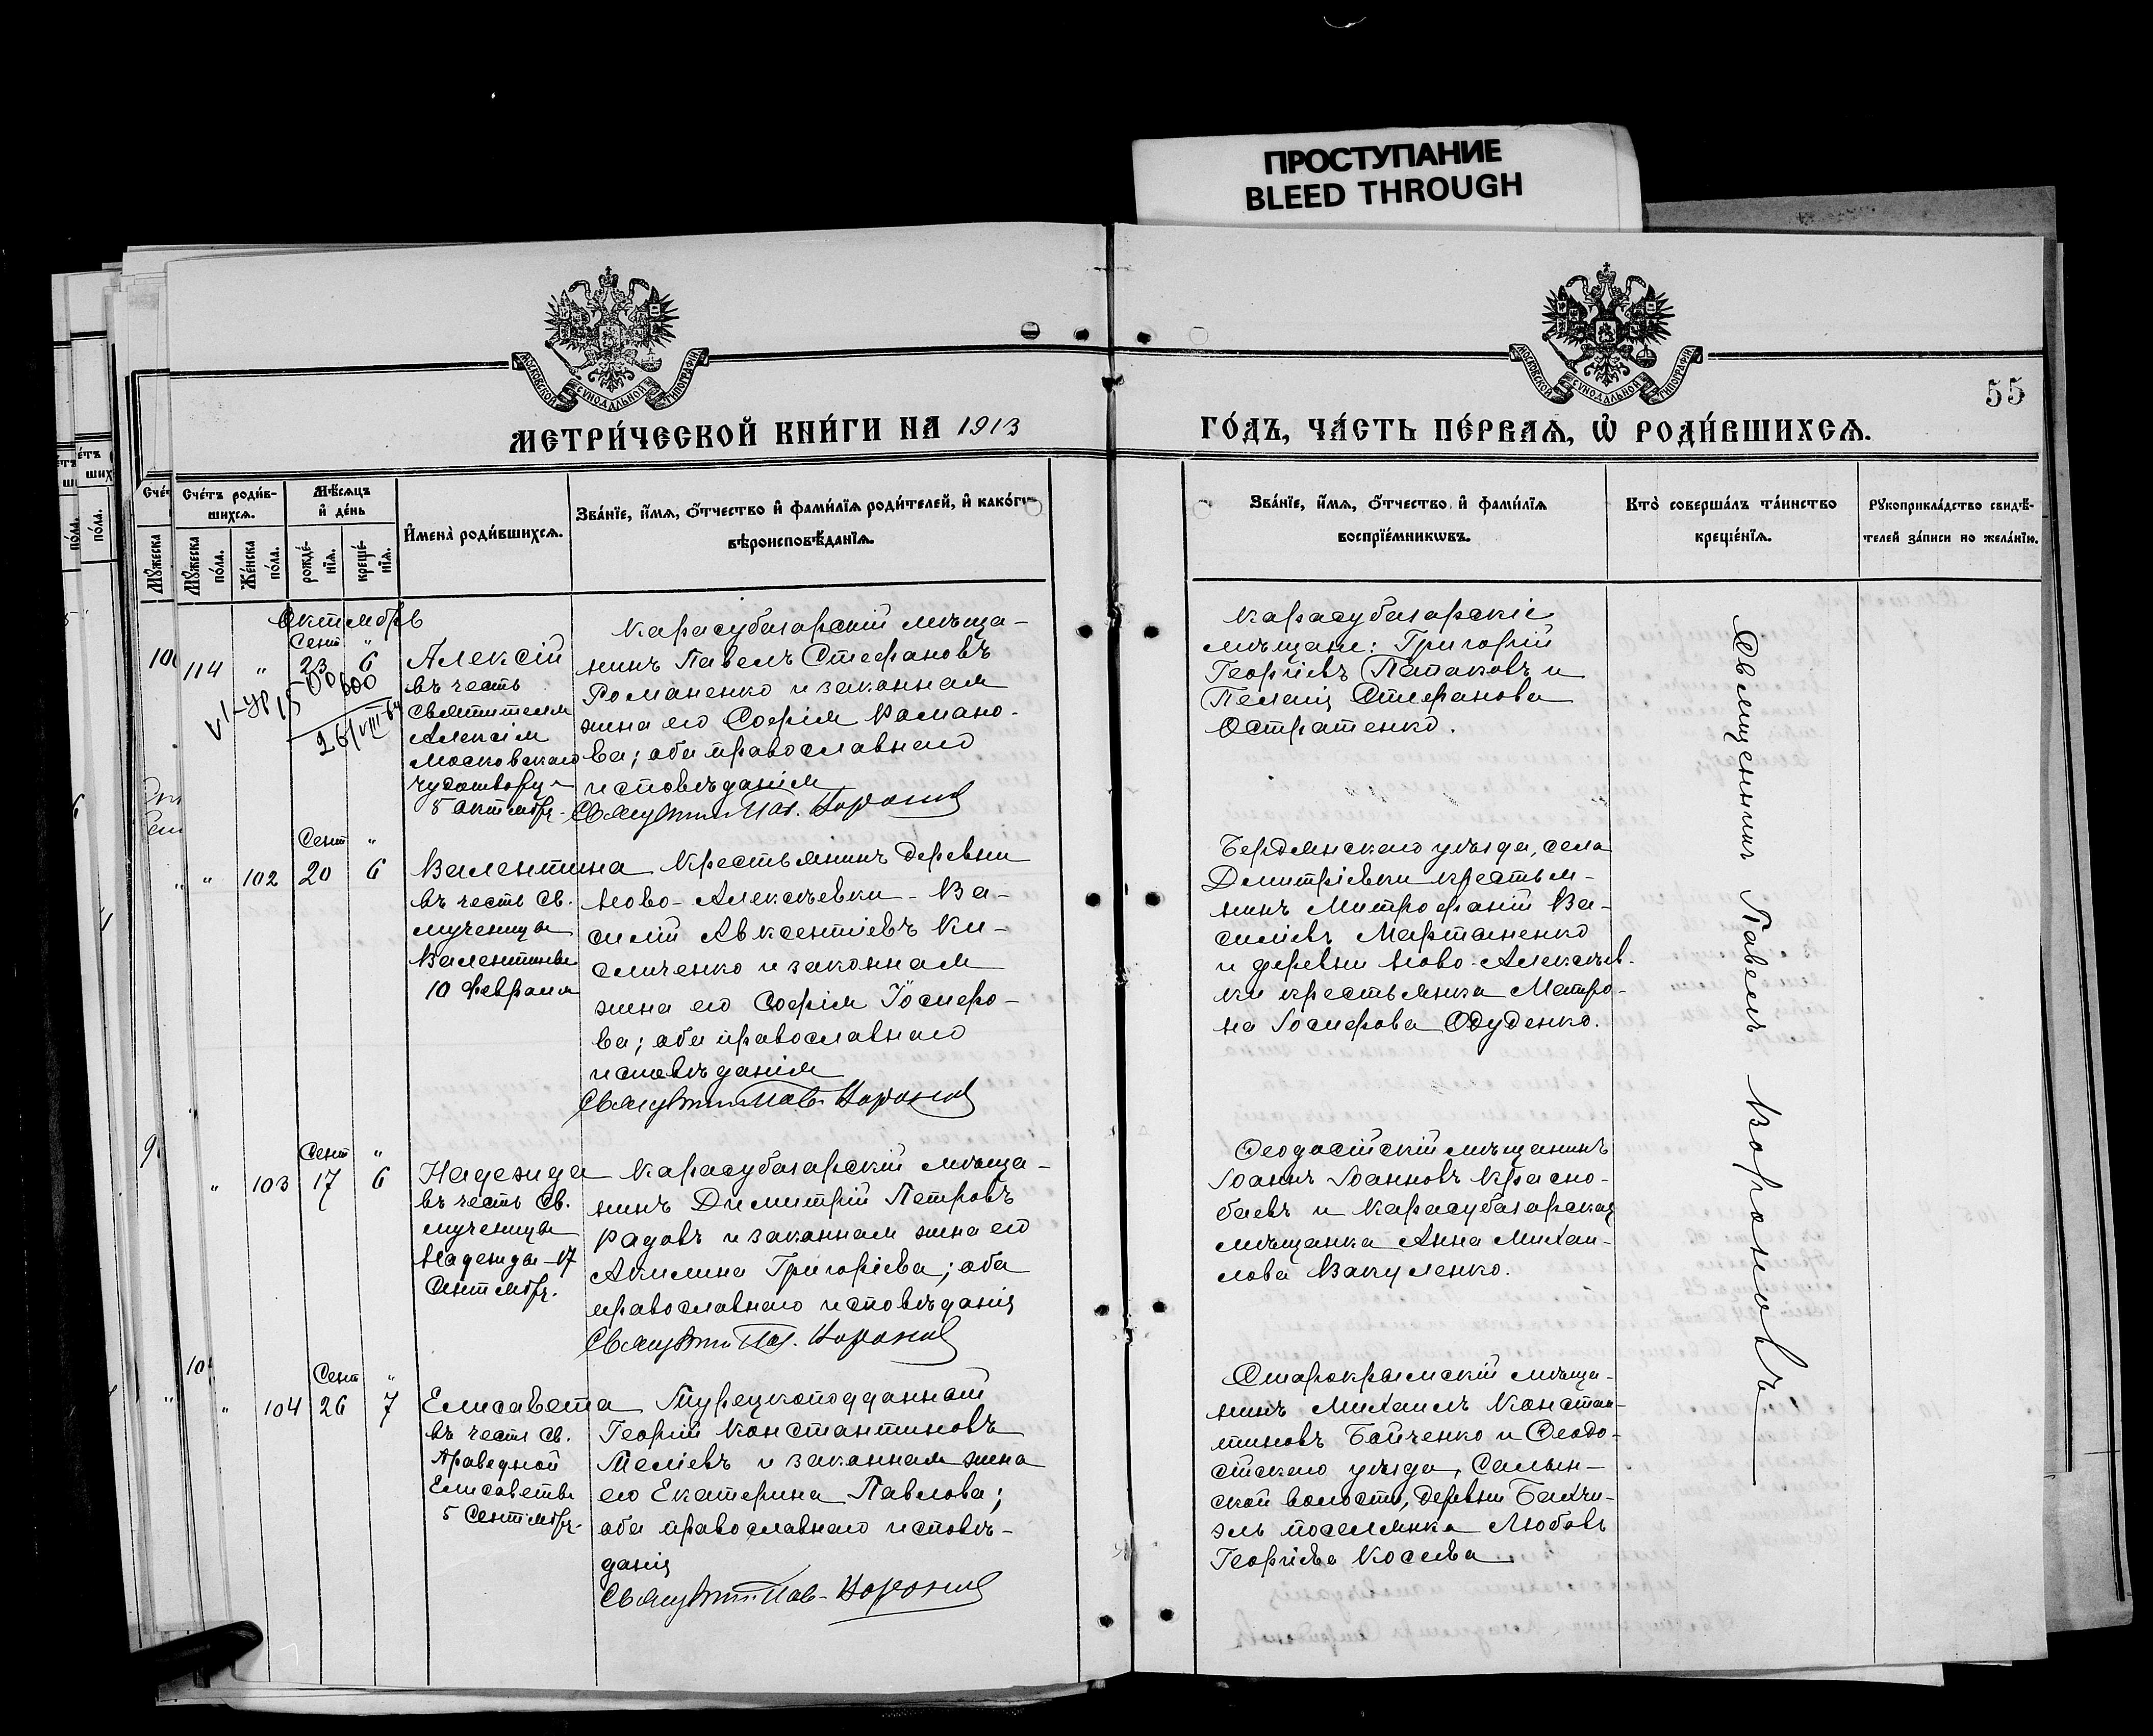 ПРОСТУПАНИЕ
BLEED THROUGH
МОСКОВСКОЙ СѴНОДАЛЬНОЙ ТИПОГРАФІИ
МОСКОВСКОЙ СѴНОДАЛЬНОЙ ТИПОГРАФІИ
55
МЕТРИ́ЧЕСКОЙ КНИ́ГИ НА 1913
ГО́ДЪ, ЧА́СТЬ ПЕ́РВАѦ, Ѡ҆ РОДИ́ВШИХСѦ.
Сче́тъ роди́в-
шихсѧ.
Мꙋ́жеска
по́ла.
Же́нска
по́ла.
Мѣ́сѧцъ
и҆ де́нь
рожде́-
нїѧ.
креще́-
нїѧ.
И҆мена̀ роди́вшихсѧ.
Зва́нїе, и҆́мѧ, ѻ҆́тчество и҆ фами́лїѧ роди́телей, и҆ како́гѡ
вѣроисповѣ́данїѧ.
Зва́нїе, и҆́мѧ, ѻ҆́тчество и҆ фами́лїѧ
воспрїе́мникѡвъ.
Кто̀ соверша́лъ та́инство
креще́нїѧ.
Рꙋкоприкла́дство свидѣ́-
телей за́писи по жела́нїю.
Октябрь
Сент "
114 " 23 6
26/VIII 64
Алексій
въ честь
Святителя
Алексія
Московскаго
чудотворца
5 октября.
Карасубазарскій мѣща-
нинъ Павелъ Стефановъ
Романенко и законная
жена его Софія Романо-
ва; оба православнаго
исповѣданія
Священникъ Пав. Вороновъ
Карасубазарскіе
мѣщане: Григорій
Георгіевъ Папаковъ и
Пелагія Стефанова
Остратенко.
Священникъ Павелъ Вороновъ
Сент "
" 102 20 6
Валентина
въ честь св.
мученицы
Валентины
10 февраля
Крестьянинъ деревни
Ново-Алексѣевки - Ва-
силій Авксентіевъ Ки-
сличенко и законная
жена его Софія Іосифо-
ва; оба православнаго
исповѣданія
Священникъ Пав. Вороновъ
Бердянскаго уѣзда, села
Димитріевки крестья-
нинъ Митрофанъ Ва-
силіевъ Мартыненко
и деревни Ново-Алексѣев-
ки крестьянка Матро-
на Іосифова Одуденко.
Сент "
" 103 17 6
Надежда
въ честь св.
мученицы
Надежды - 17
Сентября.
Карасубазарскій мѣща-
нинъ Димитрій Петровъ
Радовъ и законная жена его
Акилина Григоріева; оба
православнаго исповѣданія
Священникъ Пав. Вороновъ
Ѳеодосійскій мѣщанинъ
Іоаннъ Іоанновъ Красно-
баевъ и Карасубазарская
мѣщанка Анна Михаи-
лова Вакуленко.
Сент "
" 104 26 7
Елисавета
въ честь св.
Праведной
Елисаветы
5 Сентября.
Турецкоподданный
Георгій Константиновъ
Меліевъ и законная жена
его Екатерина Павлова;
оба православнаго исповѣ-
данія
Священникъ Пав. Вороновъ
Старокрымскій мѣща-
нинъ Михаилъ Констан-
тиновъ Байченко и Ѳеодо-
сійскаго уѣзда, Салын-
ской волости, деревни Бахчи-
эль поселянка Любовь
Георгіева Косева